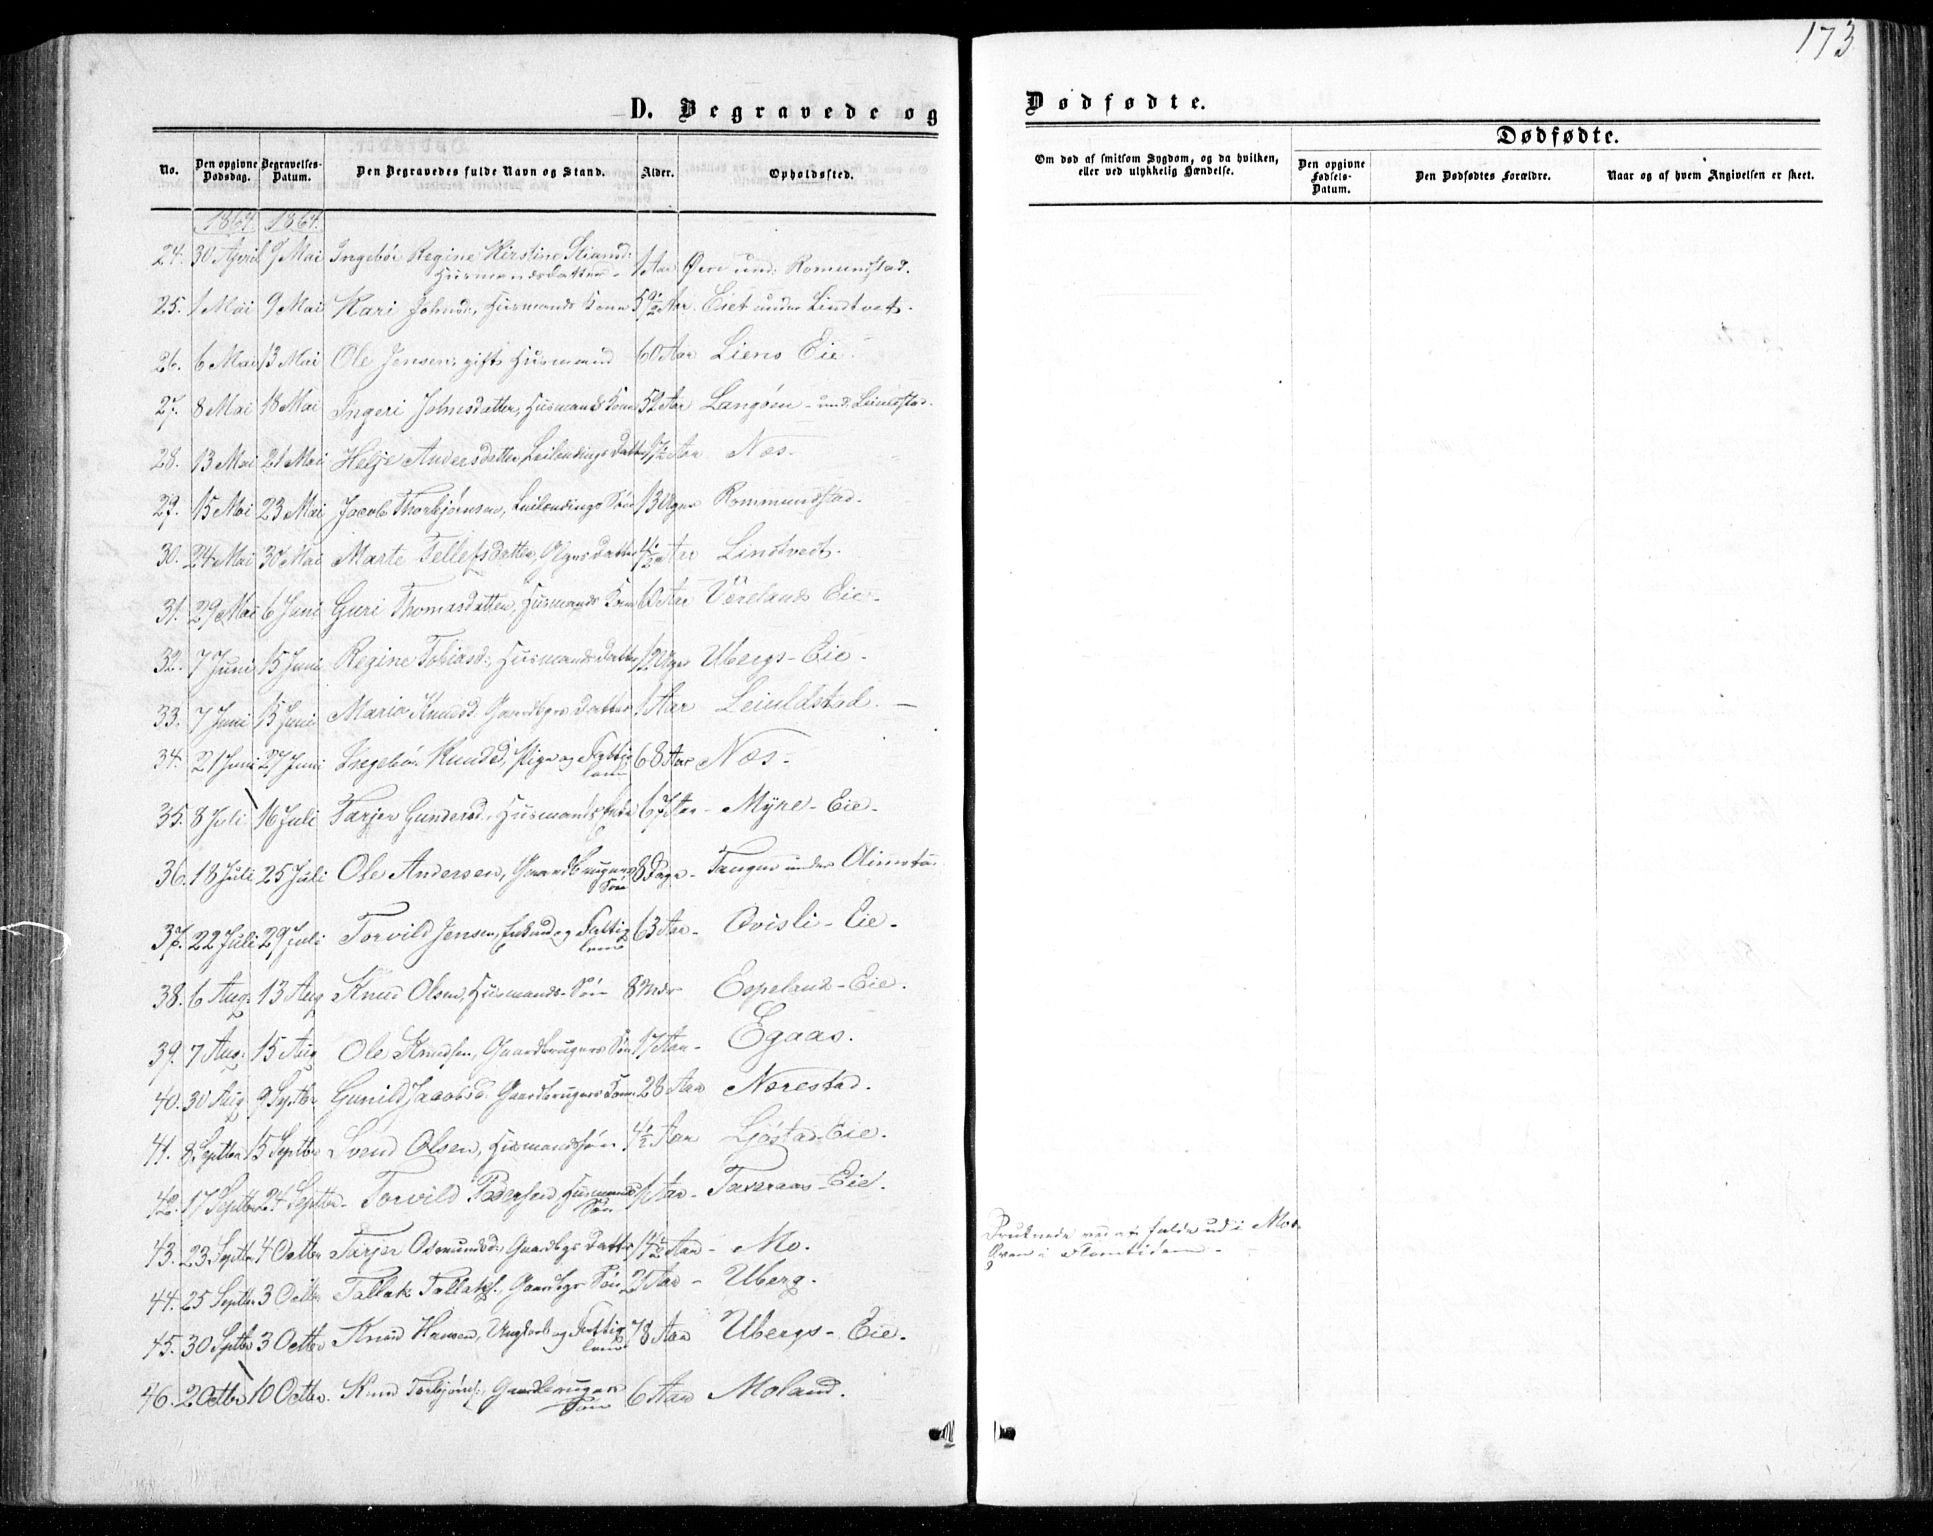 173
D. Begravede og Dødfødte.
No. Den opgivne Dødsdag. Begravelses-Datum. Den Begravedes fulde Navn og Stand. Alder. Opholdssted. Om død af smitsom Sygdom, og da hvilken, eller ved ulykkelig Hændelse. Dødfødte.
Den opgivne Fødsels-Datum. Den Dødfødtes Forældre. Naar og af hvem Angivelsen er skeet.
1864. 1864.
24. 30 April 9 Mai Ingebör Regine Kirstine
Husmandsdatter 1 Aar Øere und: Romundstad.
25. 1 Mai 9 Mai Kari Johnsd:, Husmands Kone Aar. Eiet under Lindtveit.
26. 6 Mai 13 Mai Ole Jensen, gift Husmand 60 Aar Liens Eie.
27. 8 Mai 18 Mai Ingeri Johnsdatter, Husmands Kone 52 Aar Langøen - und:
28. 13 Mai 21 Mai Helje Andersdatter, Leilændings Datter Aar Næs.
29. 15 Mai 23 Mai Jacob Thorbjörnsen, Leilændings Sön 13 Uger Rommundstad.
30. 24 Mai 30 Mai Marte Tellefsdatter, Datter Aar Lindtveit.
31. 29 Mai 6 Juni Guri Thomasdatter, Husmands Kone Aar Vöreland Eie.
32. 7 Juni 15 Juni Regine Tobiasd:, Husmands Datter 12 Uger Ubergs-Eie.
33. 7 Juni 15 Juni Maria Knudsd. Gaardbrgs Datter 1 Aar Leiuldstad. —
34. 21 Juni 27 Juni Ingebör Knudsd, Pige og Fattig
lem 68 Aar Næs-
35. 8 Juli 16 Juli Tarjer Gundersd., Husmands Enke 67 Aar - Myre-Eie.
36. 18 Juli 25 Juli Ole Andersen, Gaardbrugers
Sön 8 Dage - Tangen under
37. 22 Juli 29 Juli Torvild Jensen, Enkemd og Fattig
lem 63 Aar - Qvisli-Eie-
38. 6 Aug. 13 Aug Knud Olsen, Husmands-Sön 8 Mdr Espeland-Eie.
39. 7 Aug: 15 Aug Ole Knudsen, Gaardbrugers Sön 17 Aar - Egaas.
40. 30 Aug 9 Septbr Gunild Jacobsd. Gaardbrugers Kone 28 Aar Nærestad.
41. 8 Septbr 15 Septbr Svend Olsen, Husmandssön 4½ Aar Ljöstad-Eie.
42. 17 Septbr 24 Septbr. Torvild Pedersen, Husmands
Sön Aar - Toveraas-Eie.
43. 23 Septbr 4 Octbr Tarjer Osmundsdr Gaardbgs Datter Aar - Mo. Druknede ved at falde ud i Moe
i Flomtiden.
44. 25 Septbr 3 Octbr Tallak Tallaks., Gaardbgs Sön Aar - Uberg.
45. 30 Septbr 3 Octbr Knud Hansen, Ungkarl og Fattig
lem 78 Aar Ubergs-Eie.
46. 2 Octbr 10 Octbr. Knud Torbjörns:, Gaardbrugers
Sön 6 Aar Moland.